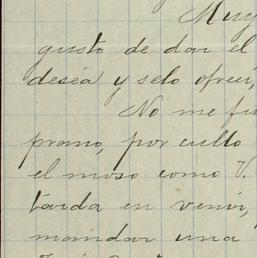 Muy
gusto de dar el
deséa y selo ofrez,
No me fu
prano, por cullo
el moso como V.
tarda en venir,
mandar una